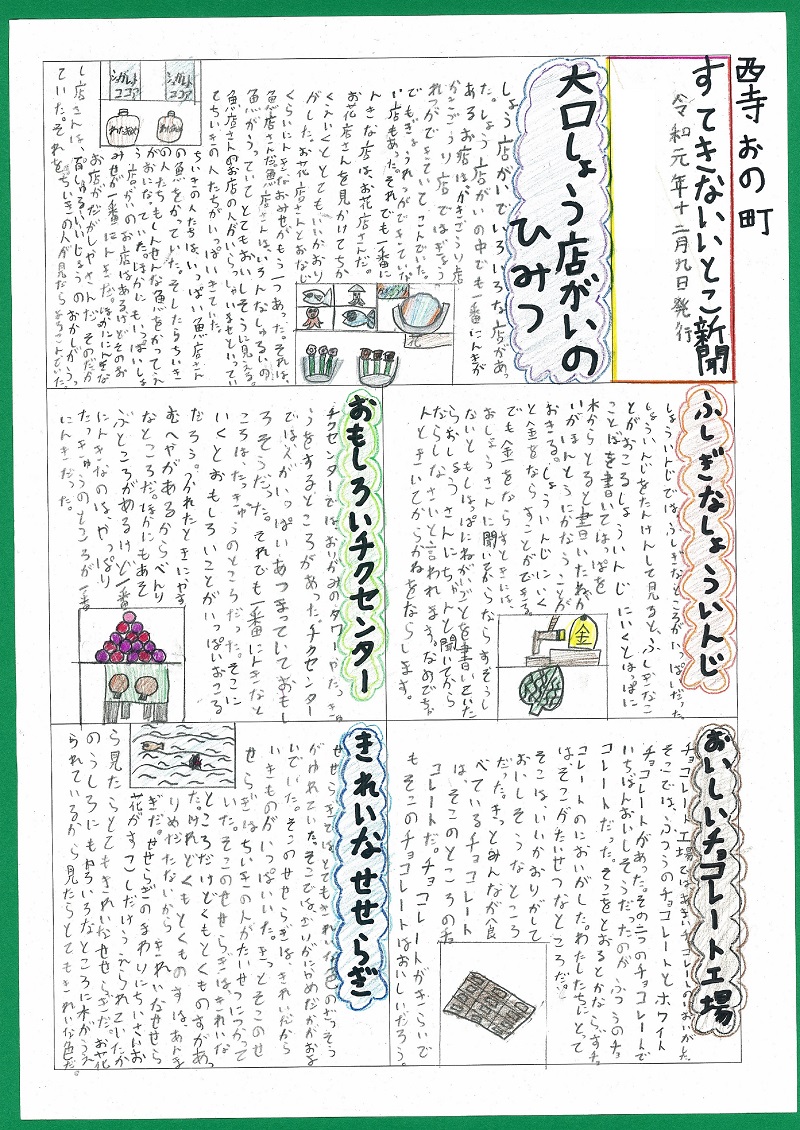 西寺おの町
すてきないいとこ新聞
令和元年十二月九日発行
大口しょう店がいの
ひみつ
しょう店がいでいろいろな店があっ
た。しょう店がいの中でも一番にんきが
あるお店はかきごうり店
かきごうり店ではぎょう
れつができていてこんでいた。
でもぎょうれつができていな
い店もあった。それでも一番に
んきな店はお花店さんだ。
お花店さんを見かけてちか
くえいくととてもいいかおり
がした。お花店さんとおなじ
くらいにんきなおみせがもう一つあった。それは、
魚店さんだ魚店さんは、いろんなしゅるいの
魚がうっていてとてもおいしそうに見える。
魚店さんのお店の人がいらっしゃいませといってい
てちいきの人たちがいっぱいきていた。
ちいきの人たちは、いっぱい魚店さん
の魚をかっていた。そしたらちいき
の人たちもしんせんな魚をかってえ
がおになっていた。ほかにもいっぱいしょ
う店がいのお店はあるけどそのお
みせが一番にんきだ。ほかににんきな
お店がだがしやさんだ。そのだが
し店さんは、百しゅるいいじょうのおかしがうっ
ていた。それをちいきの人が見たらよろこんでいた。
シガレット
ココア
シガレット
ココア
わたあめ
わたあめ
花
ふしぎなしょういんじ
しょういんじではふしぎなところがいっぱいだった。
しょういんじをたんけんして見ると、ふしぎなこ
とがおこるしょういんじにいくとはっぱに
ことばを書いてはっぱを
木からとると書いたねが
いがほんとうにかなうことが
おきる。しょういんじにいく
と金をならすことができる。
でも金をならすときには、
おしょうさんに聞いてからならすそうし
ないともしはっぱにねがいごとを書いていた
らおしょうさんにちゃんと聞いてから
ならしなさいと言われます。なのでちゃ
んときいてからかねをならします。
金
おもしろいチクセンター
チクセンターでは、おりがみのタワーやたっきゅ
うをするところがあった。チクセンター
では人がいっぱいあつまっていておもし
ろそうだった。それでも一番にんきなと
ころは、たっきゅうのところだった。そこに
いくとおもしろいことがいっぱいおこる
だろう。つかれたときにやす
むへやがあるからべんり
なところだ。ほかにもあそ
ぶところがあるけど一番
にんきなのは、やっぱり
たっきゅうのところが一番
にんきだった。
おいしいチョコレート工場
チョコレート工場では大きいチョコレートのにおいがした。
そこでは、ふつうのチョコレートとホワイト
チョコレートがあった。その二つのチョコレートで
いちばんおいしそうだったのが、ふつうのチョ
コレートだった。そこをとおるとかならずチョ
コレートのにおいがした。わたしたちにとって
はそこがたいせつなところだ。
そこは、いいかおりがして
おいしそうなところ
だった。きっとみんなが食
べているチョコレート
は、そこのところのチョ
コレートだ。チョコレートがきらいで
もそこのチョコレートはおいしいだろう。
きれいなせせらぎ
せせらぎではとてもきれいな色のざっそう
がゆれていた。そこでは、ざりがにやめだかがおよ
いでいた。そこのせせらぎは、きれいだから
いきものがいっぱいいた。きっとそこのせ
せらぎはちいきの人がたいせつにつかって
いた。そこのせせらぎは、きれいな
ところだけどくもとくものすがあっ
た。けれどくもとくものすは、あんま
りめだたないからきれいなせせら
ぎだ。せせらぎのまわりにちいさいお
花がすこしだけうえられていたか
ら見たらとてもきれいなせせらぎだ。お花
のうしろにもいろいろなところに木がうえ
られているから見たらとてもきれいな色だ。